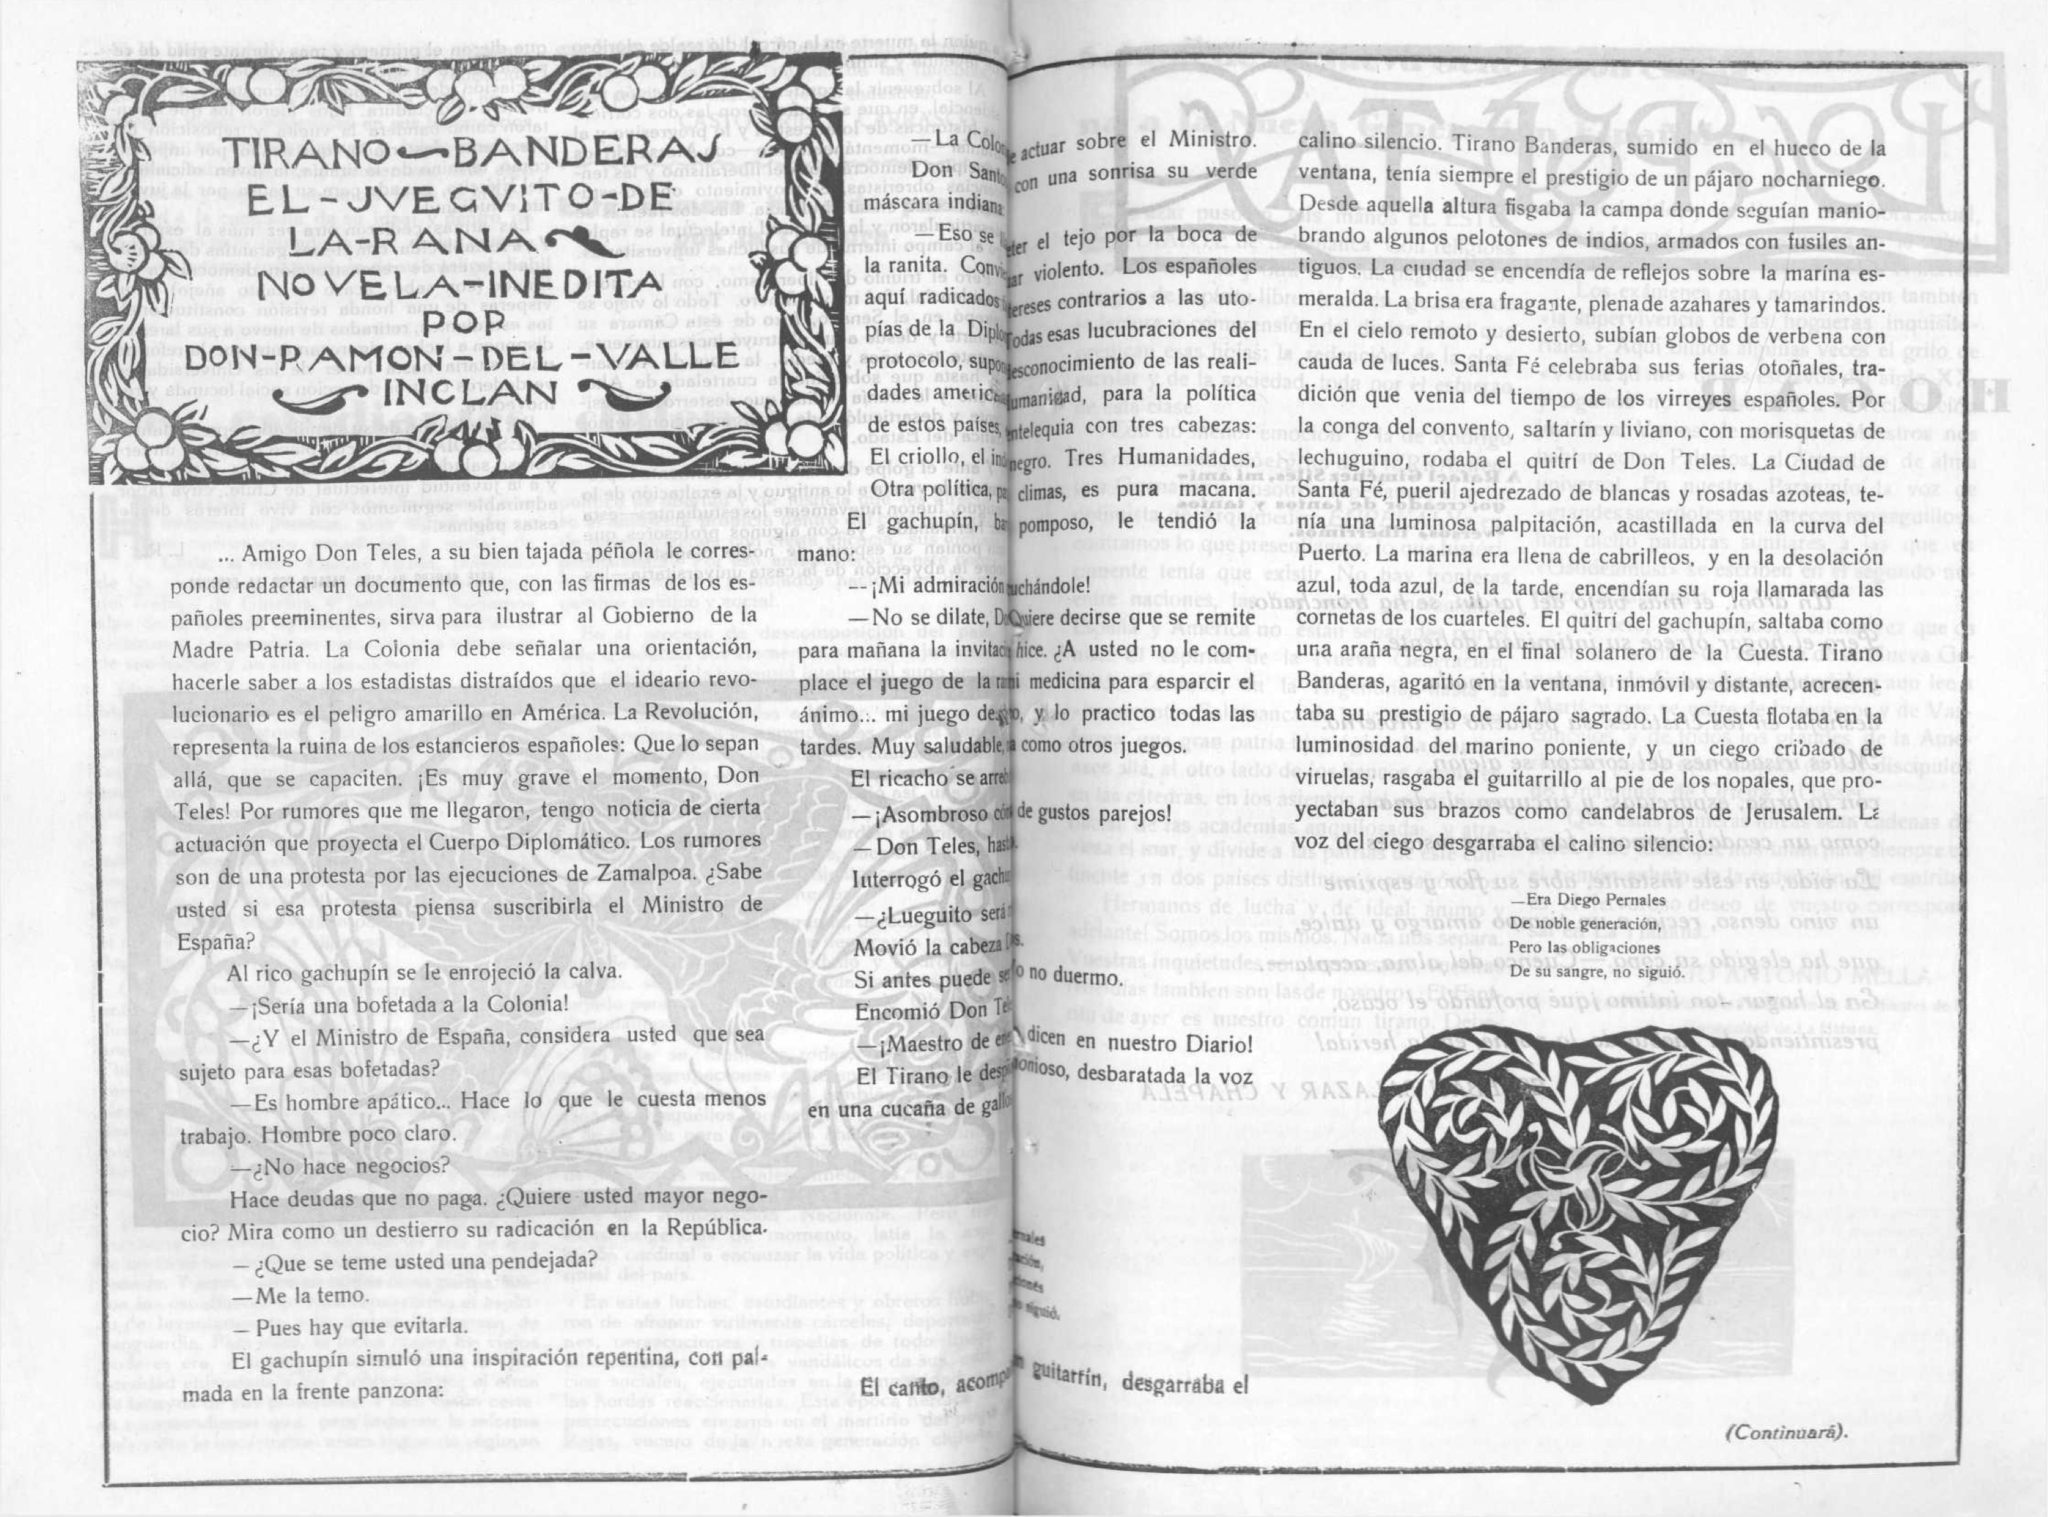 TIRANO BANDERAS
EL-JVEGVITO-DE
LA-RANA
NOVELA-INEDITA
POR
DON-RAMON-DEL-VALLE
INCLAN
... Amigo Don Teles, a su bien tajada péñola le corres-
ponde redactar un documento que, con las firmas de los es-
pañoles preeminentes, sirva para ilustrar al Gobierno de la
Madre Patria. La Colonia debe señalar una orientación,
hacerle saber a los estadistas distraídos que el ideario revo-
lucionario es el peligro amarillo en América. La Revolución,
representa la ruina de los estancieros españoles: Que lo sepan
allá, que se capaciten. ¡Es muy grave el momento, Don
Teles! Por rumores que me llegaron, tengo noticia de cierta
actuación que proyecta el Cuerpo Diplomático. Los rumores
son de una protesta por las ejecuciones de Zamalpoa. ¿Sabe
usted si esa protesta piensa suscribirla el Ministro de
España?
Al rico gachupín se le enrojeció la calva.
—¡Sería una bofetada a la Colonia!
—¿Y el Ministro de España, considera usted que sea
sujeto para esas bofetadas?
—Es hombre apático... Hace lo que le cuesta menos
trabajo. Hombre poco claro.
—¿No hace negocios?
Hace deudas que no paga. ¿Quiere usted mayor nego-
cio? Mira como un destierro su radicación en la República.
—¿Que se teme usted una pendejada?
—Me la temo.
—Pues hay que evitarla.
El gachupín simuló una inspiración repentina, con pal-
mada en la frente panzona:
—La actuar sobre el Ministro.
Don con una sonrisa su verde
máscara indiana
—Eso se el tejo por la boca de
la ranita. violento. Los españoles
aquí radicados contrarios a las uto-
pías de la Todas esas lucubraciones del
protocolo, desconocimiento de las reali-
dades para la política
de estos países, entelequia con tres cabezas:
El criollo, el negro. Tres Humanidades,
Otra política, climas, es pura macana.
El gachupín, pomposo, le tendió la
mano:
--¡Mi admiración
—No se dilate, Quiere decirse que se remite
para mañana la hice. ¿A usted no le com-
place el juego de la mi medicina para esparcir el
ánimo... mi juego y lo practico todas las
tardes. Muy saludable, como otros juegos.
El ricacho se
—¡Asombroso de gustos parejos!
—Don Teles,
Interrogó el
—¿Lueguito será
Movió la cabeza
Si antes puede no duermo.
Encomió Don
—¡Maestro de dicen en nuestro Diario!
El Tirano le desbaratada la voz
en una cucaña de
El canto, guitarrín, desgarraba el
calino silencio. Tirano Banderas, sumido en el hueco de la
ventana, tenía siempre el prestigio de un pájaro nocharniego.
Desde aquella altura fisgaba la campa donde seguían manio-
brando algunos pelotones de indios, armados con fusiles an-
tiguos. La ciudad se encendía de reflejos sobre la marína es-
meralda. La brisa era fragante, plenade azahares y tamarindos.
En el cielo remoto y desierto, subían globos de verbena con
cauda de luces. Santa Fé celebraba sus ferias otoñales, tra-
dición que venia del tiempo de los virreyes españoles. Por
la conga del convento, saltarín y liviano, con morisquetas de
lechuguino, rodaba el quitrí de Don Teles. La Ciudad de
Santa Fé, pueril ajedrezado de blancas y rosadas azoteas, te-
nía una luminosa palpitación, acastillada en la curva del
Puerto. La marina era llena de cabrilleos, y en la desolación
azul, toda azul, de la tarde, encendían su roja llamarada las
cornetas de los cuarteles. El quitrí del gachupín, saltaba como
una araña negra, en el final solanero de la Cuesta. Tirano
Banderas, agaritó en la ventana, inmóvil y distante, acrecen-
taba su prestigio de pájaro sagrado. La Cuesta flotaba en la
luminosidad del marino poniente, y un ciego cribado de
viruelas, rasgaba el guitarrillo al pie de los nopales, que pro-
yectaban sus brazos como candelabros de Jerusalem. La
voz del ciego desgarraba el calino silencio:
—Era Diego Pernales
De noble generación,
Pero las obligaciones
De su sangre, no siguió.
(Continuará).